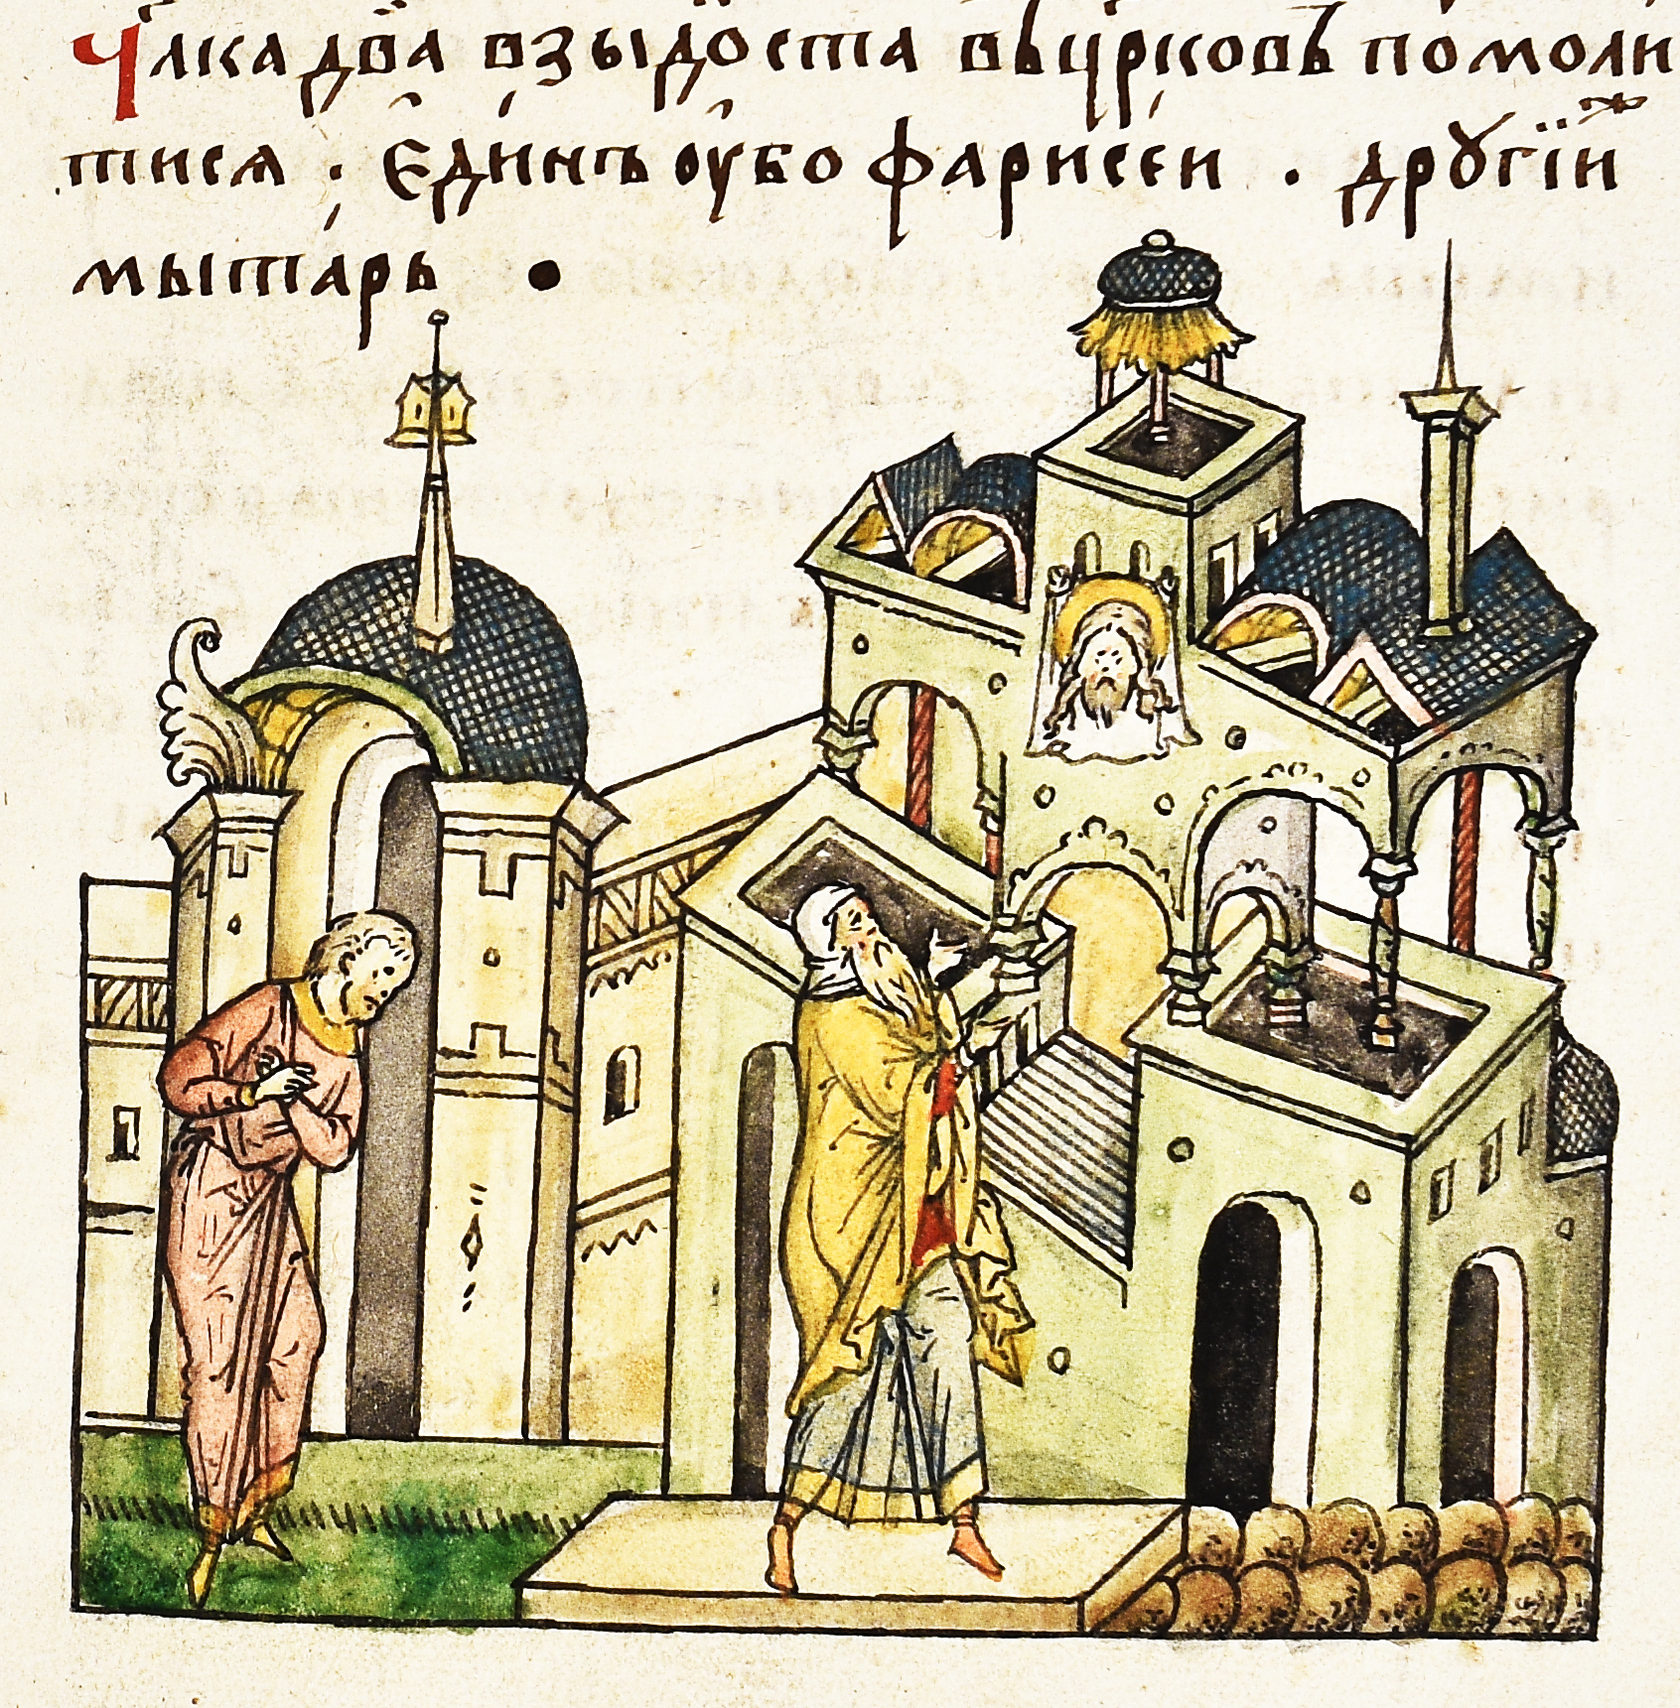 Члка два взыдоста въ црковъ помоли
тися . Единъ оубо фарисеи . другїи
мытарь .